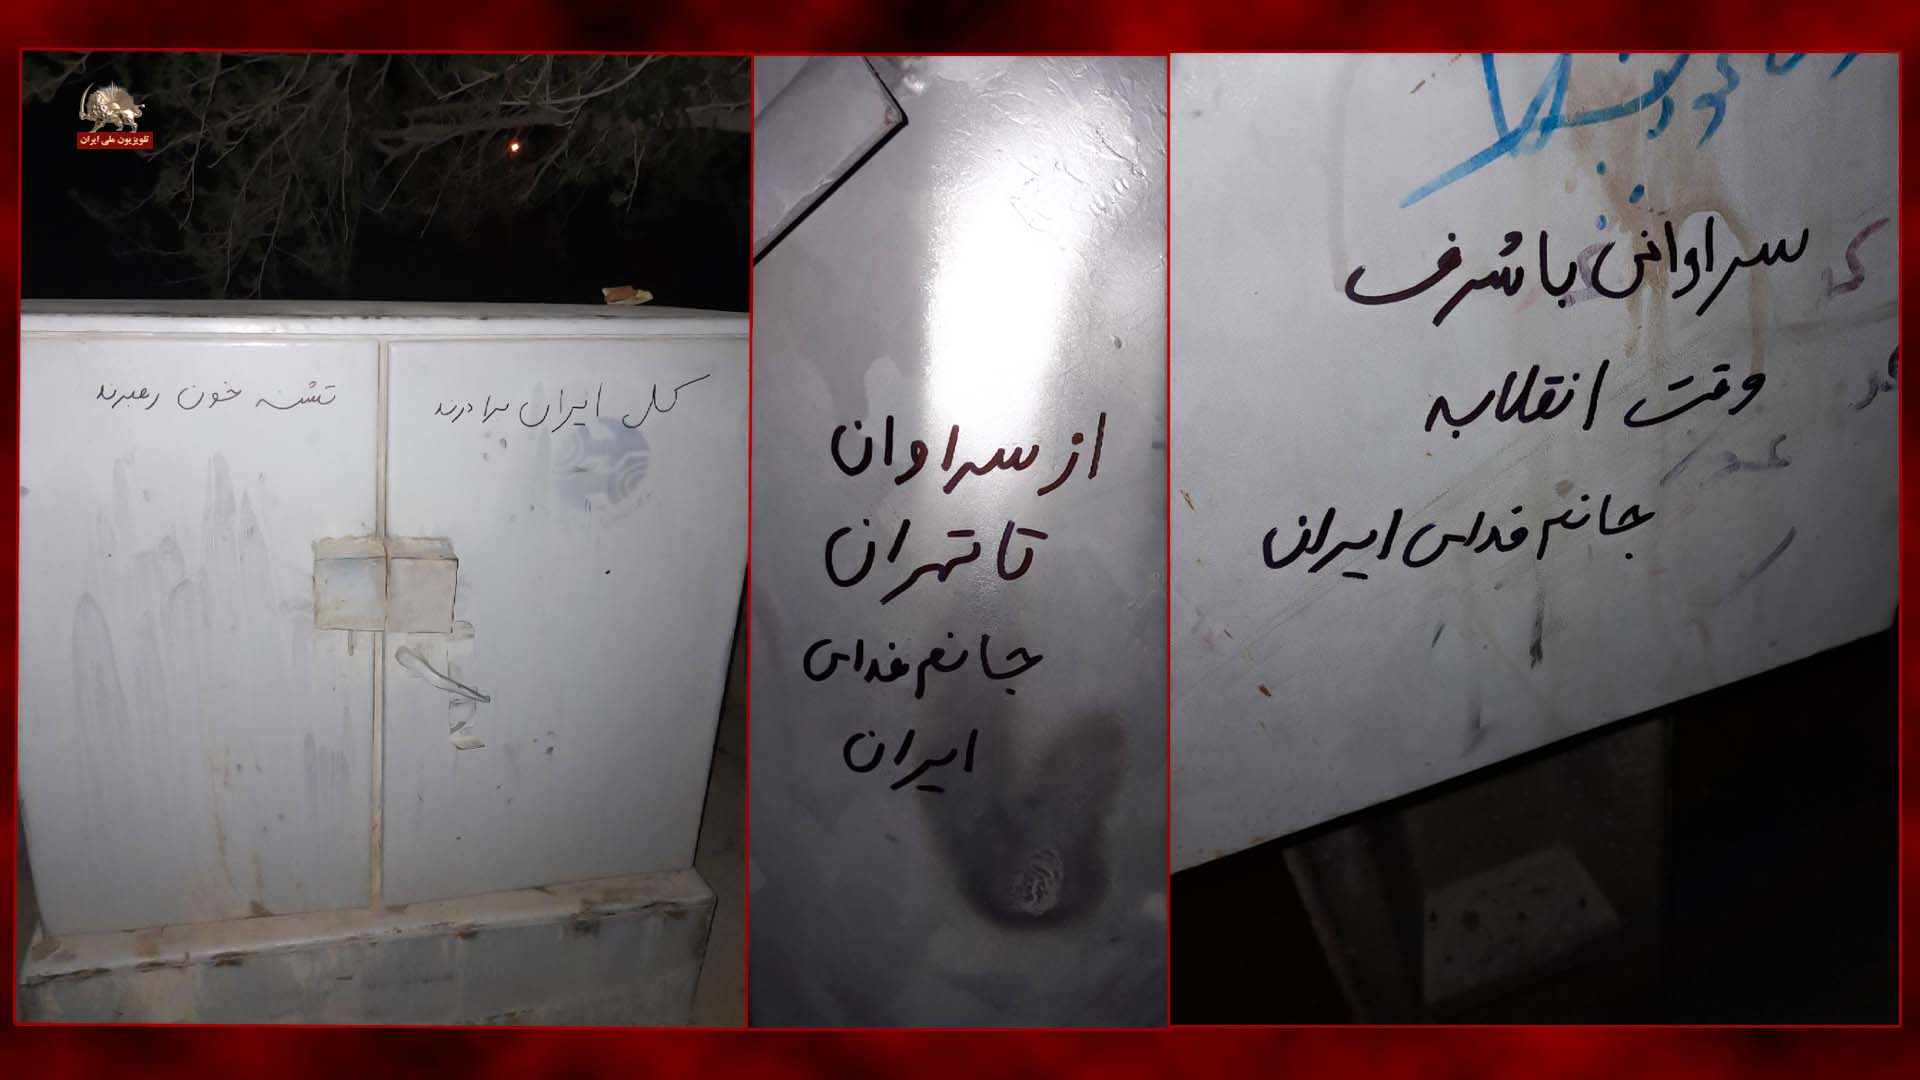 تلویزیون ملی ایران
کل ایران برادرند
تشنه خون رهبرند
از سراوان
تا تهران
جانم فدای
ایران
سراوانی با شرف
وقت انقلابه
جانم فدای ایران